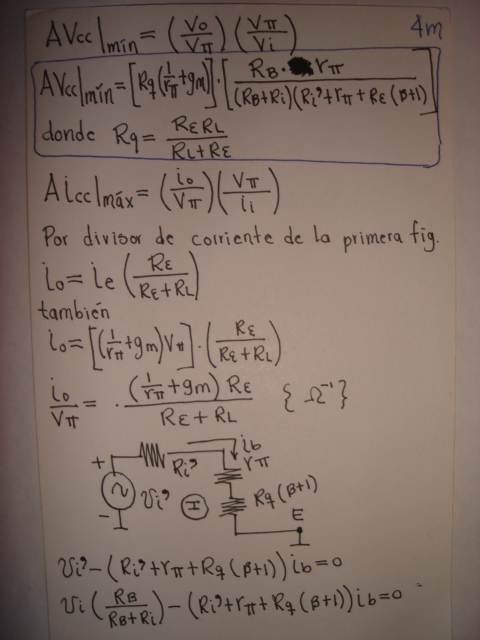 4m
AVcc|mín = (Vo/Vπ)(Vπ/Vi)
AVcc|mín = [Rq(1/rπ + gm)]·[RB·rπ/((RB+Ri)(Ri'+rπ+RE(β+1)))]
donde Rq = RE RL/(RL+RE)
Aicc|máx = (io/Vπ)(Vπ/ii)
Por divisor de corriente de la primera fig.
io = ie (RE/(RE+RL))
también
io = [(1/rπ + gm)Vπ]·(RE/(RE+RL))
io/Vπ = ·(1/rπ + gm) RE/(RE+RL) {Ω⁻¹}
+ Ri' ib
rπ
Vi' I Rq(β+1)
- E
Vi' - (Ri'+rπ+Rq(β+1)) ib = 0
Vi (RB/(RB+Ri)) - (Ri'+rπ+Rq(β+1)) ib = 0